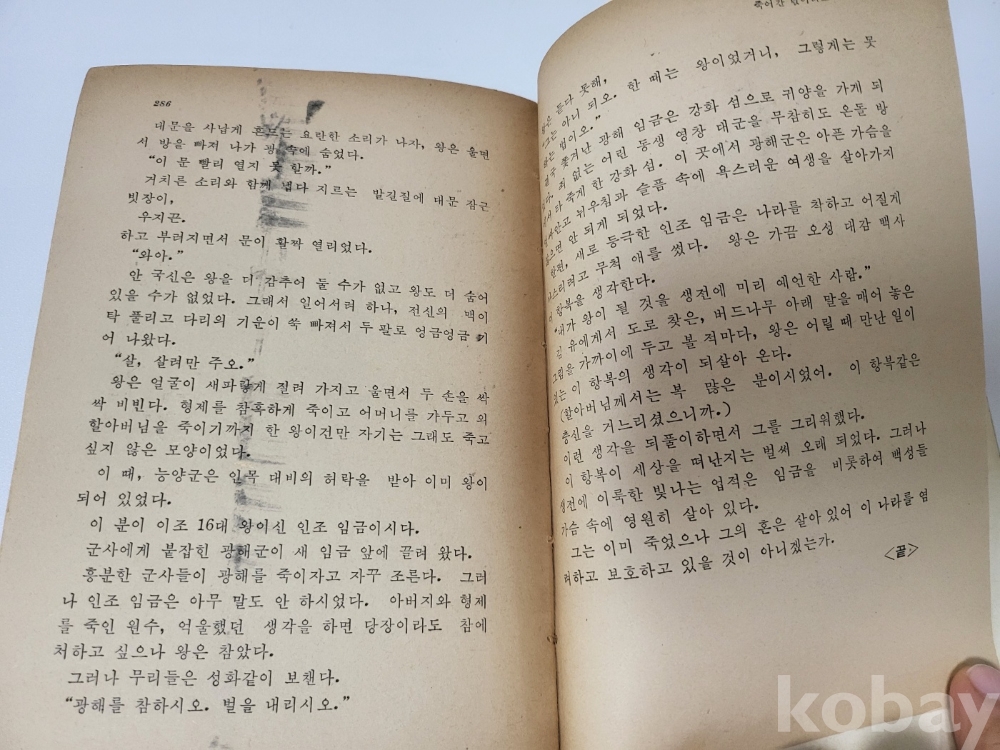 286
대문을 사납게 흔드는 요란한 소리가 나자, 왕은 울면
서 방을 빠져 나가 광 속에 숨었다.
“이 문 빨리 열지 못 할까.”
거치른 소리와 함께 냅다 지르는 발길질에 대문 잠근
빗장이,
우지끈.
하고 부러지면서 문이 활짝 열리었다.
“와아.”
안 국신은 왕을 더 감추어 둘 수가 없고 왕도 더 숨어
있을 수가 없었다. 그래서 일어서려 하나, 전신의 맥이
탁 풀리고 다리의 기운이 쑥 빠져서 두 팔로 엉금엉금 기
어 나왔다.
“살, 살려만 주오.”
왕은 얼굴이 새파랗게 질려 가지고 울면서 두 손을 싹
싹 비빈다. 형제를 참혹하게 죽이고 어머니를 가두고 외
할아버님을 죽이기까지 한 왕이건만 자기는 그래도 죽고
싶지 않은 모양이었다.
이 때, 능양군은 인목 대비의 허락을 받아 이미 왕이
되어 있었다.
이 분이 이조 16대 왕이신 인조 임금이시다.
군사에게 붙잡힌 광해군이 새 임금 앞에 끌려 왔다.
흥분한 군사들이 광해를 죽이자고 자꾸 조른다. 그러
나 인조 임금은 아무 말도 안 하시었다. 아버지와 형제
를 죽인 원수, 억울했던 생각을 하면 당장이라도 참에
처하고 싶으나 왕은 참았다.
그러나 무리들은 성화같이 보챈다.
“광해를 참하시오. 벌을 내리시오.”
듣다 못해,
아니 되오. 한 때는 왕이었거니, 그렇게는 못
법이오.”
쫓겨난 광해 임금은 강화 섬으로 귀양을 가게 되
죄 없는 어린 동생 영창 대군을 무참히도 온돌 방
죽게 한 강화 섬. 이 곳에서 광해군은 아픈 가슴을
뉘우침과 슬픔 속에 욕스러운 여생을 살아가지
않으면 안 되게 되었다.
한편, 새로 등극한 인조 임금은 나라를 착하고 어질게
다스리려고 무척 애를 썼다. 왕은 가끔 오성 대감 백사
이 항복을 생각한다.
“내가 왕이 될 것을 생전에 미리 예언한 사람.”
김 유에게서 도로 찾은, 버드나무 아래 말을 매어 놓은
그림을 가까이에 두고 볼 적마다, 왕은 어릴 때 만난 일이
있는 이 항복의 생각이 되살아 온다.
(할아버님께서는 복 많은 분이시었어. 이 항복같은
충신을 거느리셨으니까.)
이런 생각을 되풀이하면서 그를 그리워했다.
이 항복이 세상을 떠난지는 벌써 오래 되었다. 그러나
생전에 이룩한 빛나는 업적은 임금을 비롯하여 백성들
가슴 속에 영원히 살아 있다.
그는 이미 죽었으나 그의 혼은 살아 있어 이 나라를 염
려하고 보호하고 있을 것이 아니겠는가.
<끝>
kobay